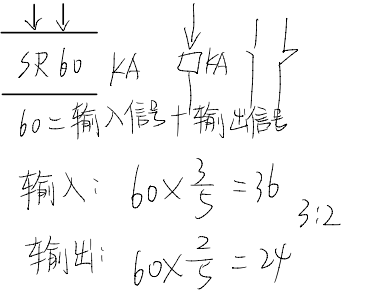 SR60 KA KA
60=输入信号+输出信号
输入: 60×3/5=36
3:2
输出: 60×2/5=24